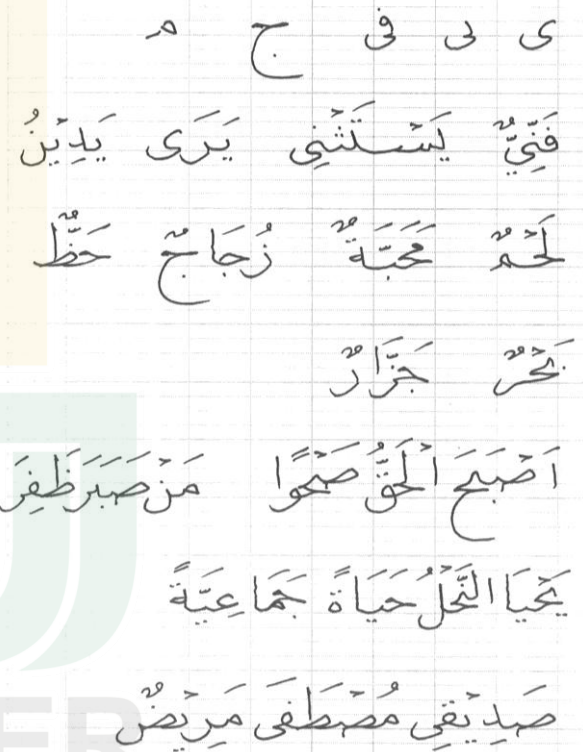 ى لى فى ج م
فَنِّيٌّ يَسْتَثْنِى يَرَى يَدِيْنُ
لَحْمٌ مَحَبَّةٌ زُجَاجٌ حَظٌّ
بَحْرٌ جَزَّارٌ
اَصْبَحَ الْحَقُّ صَحْوًا مَنْ صَبَرَ ظَفِرَ
يَحْيَا النَّحْلُ حَيَاةً جَمَاعِيَّةً
صَدِيْقِى مُصْطَفَى مَرِيْضٌ